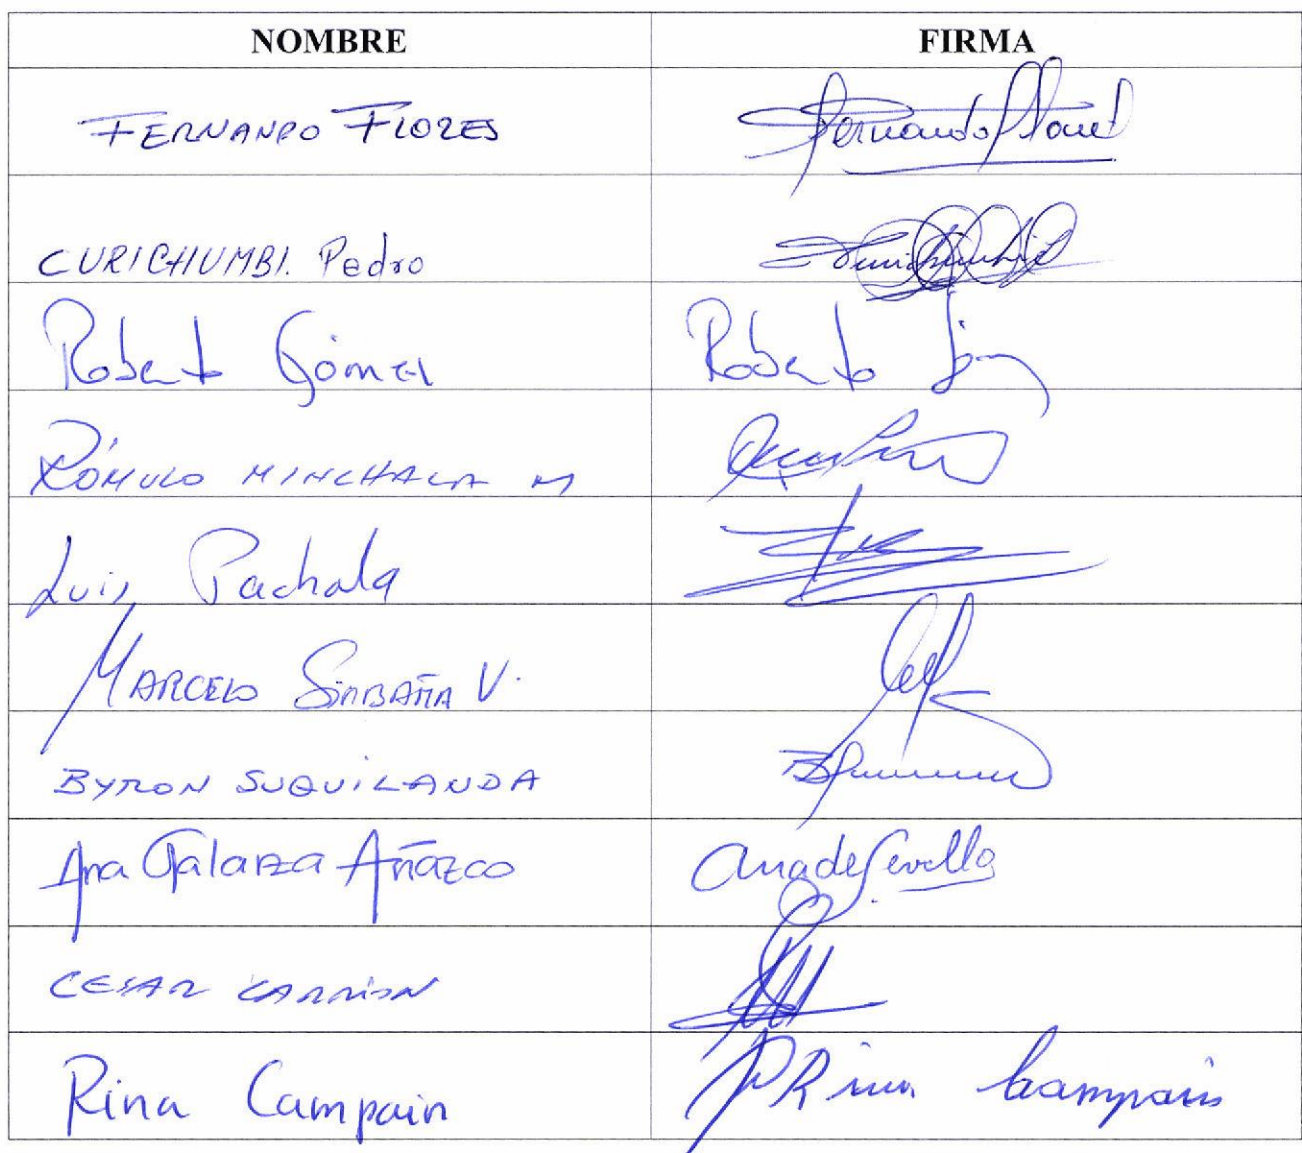 NOMBRE FIRMA
FERNANDO FLORES Fernando Flores
CURICHUMBI. Pedro
Roberto Gómez Roberto
RÓMULO MINCHALA M
Luis Pachala
MARCELO SIMBAÑA V.
BYRON SUQUILANDA
Ana Galarza Añazco Ana de Sevilla
CESAR CARRIÓN
Rina Campain Rina Campain